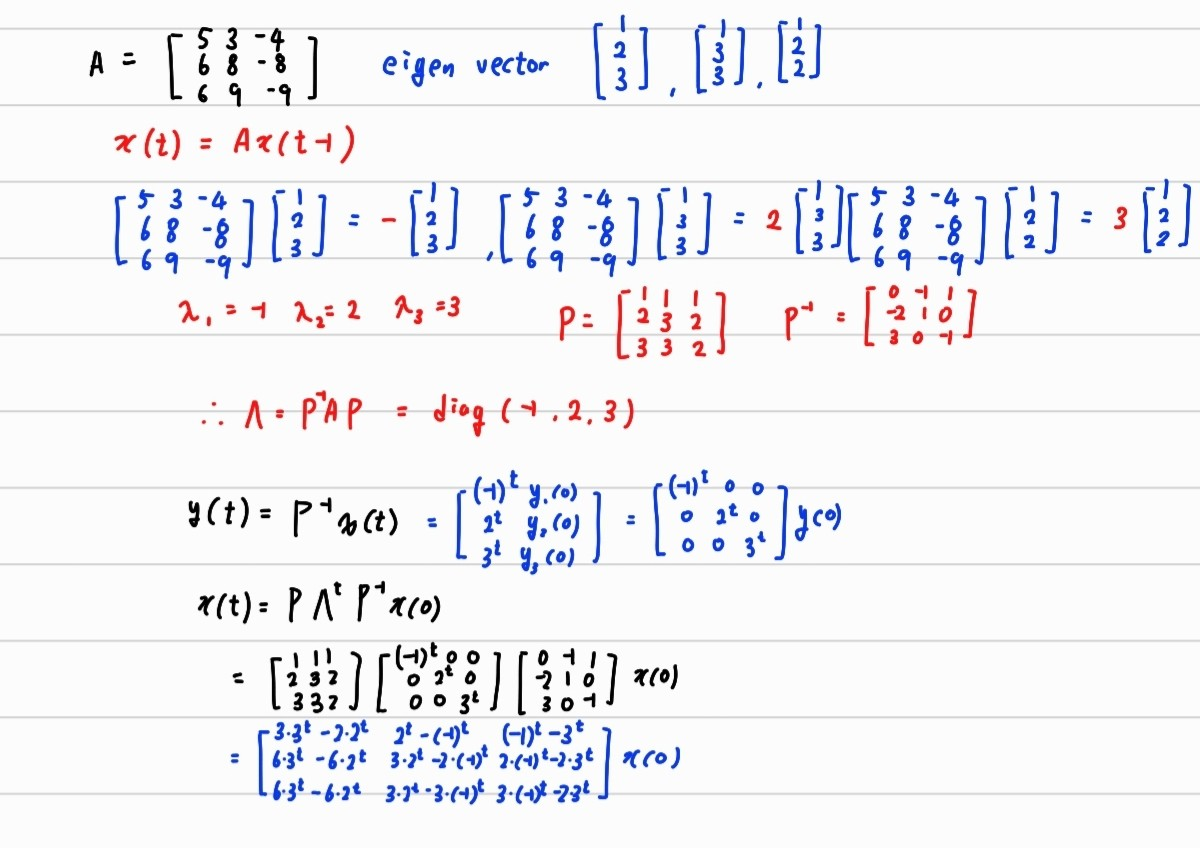 A = [5 3 -4; 6 8 -8; 6 9 -9] eigen vector [1; 2; 3], [1; 3; 3], [1; 2; 2]
x(t) = Ax(t-1)
[5 3 -4; 6 8 -8; 6 9 -9] [1; 2; 3] = -[1; 2; 3], [5 3 -4; 6 8 -8; 6 9 -9] [1; 3; 3] = 2 [1; 3; 3] [5 3 -4; 6 8 -8; 6 9 -9] [1; 2; 2] = 3 [1; 2; 2]
λ₁ = -1 λ₂ = 2 λ₃ = 3 P = [1 1 1; 2 3 2; 3 3 2] P⁻¹ = [0 -1 1; -2 1 0; 3 0 -1]
∴ Λ = P⁻¹AP = diag (-1, 2, 3)
y(t) = P⁻¹x(t) = [(-1)ᵗ y₁(0); 2ᵗ y₂(0); 3ᵗ y₃(0)] = [(-1)ᵗ 0 0; 0 2ᵗ 0; 0 0 3ᵗ] y(0)
x(t) = PΛᵗP⁻¹x(0)
= [1 1 1; 2 3 2; 3 3 2] [(-1)ᵗ 0 0; 0 2ᵗ 0; 0 0 3ᵗ] [0 -1 1; -2 1 0; 3 0 -1] x(0)
= [3·3ᵗ - 2·2ᵗ 2ᵗ - (-1)ᵗ (-1)ᵗ - 3ᵗ; 6·3ᵗ - 6·2ᵗ 3·2ᵗ - 2·(-1)ᵗ 2·(-1)ᵗ - 2·3ᵗ; 6·3ᵗ - 6·2ᵗ 3·2ᵗ - 3·(-1)ᵗ 3·(-1)ᵗ - 2·3ᵗ] x(0)